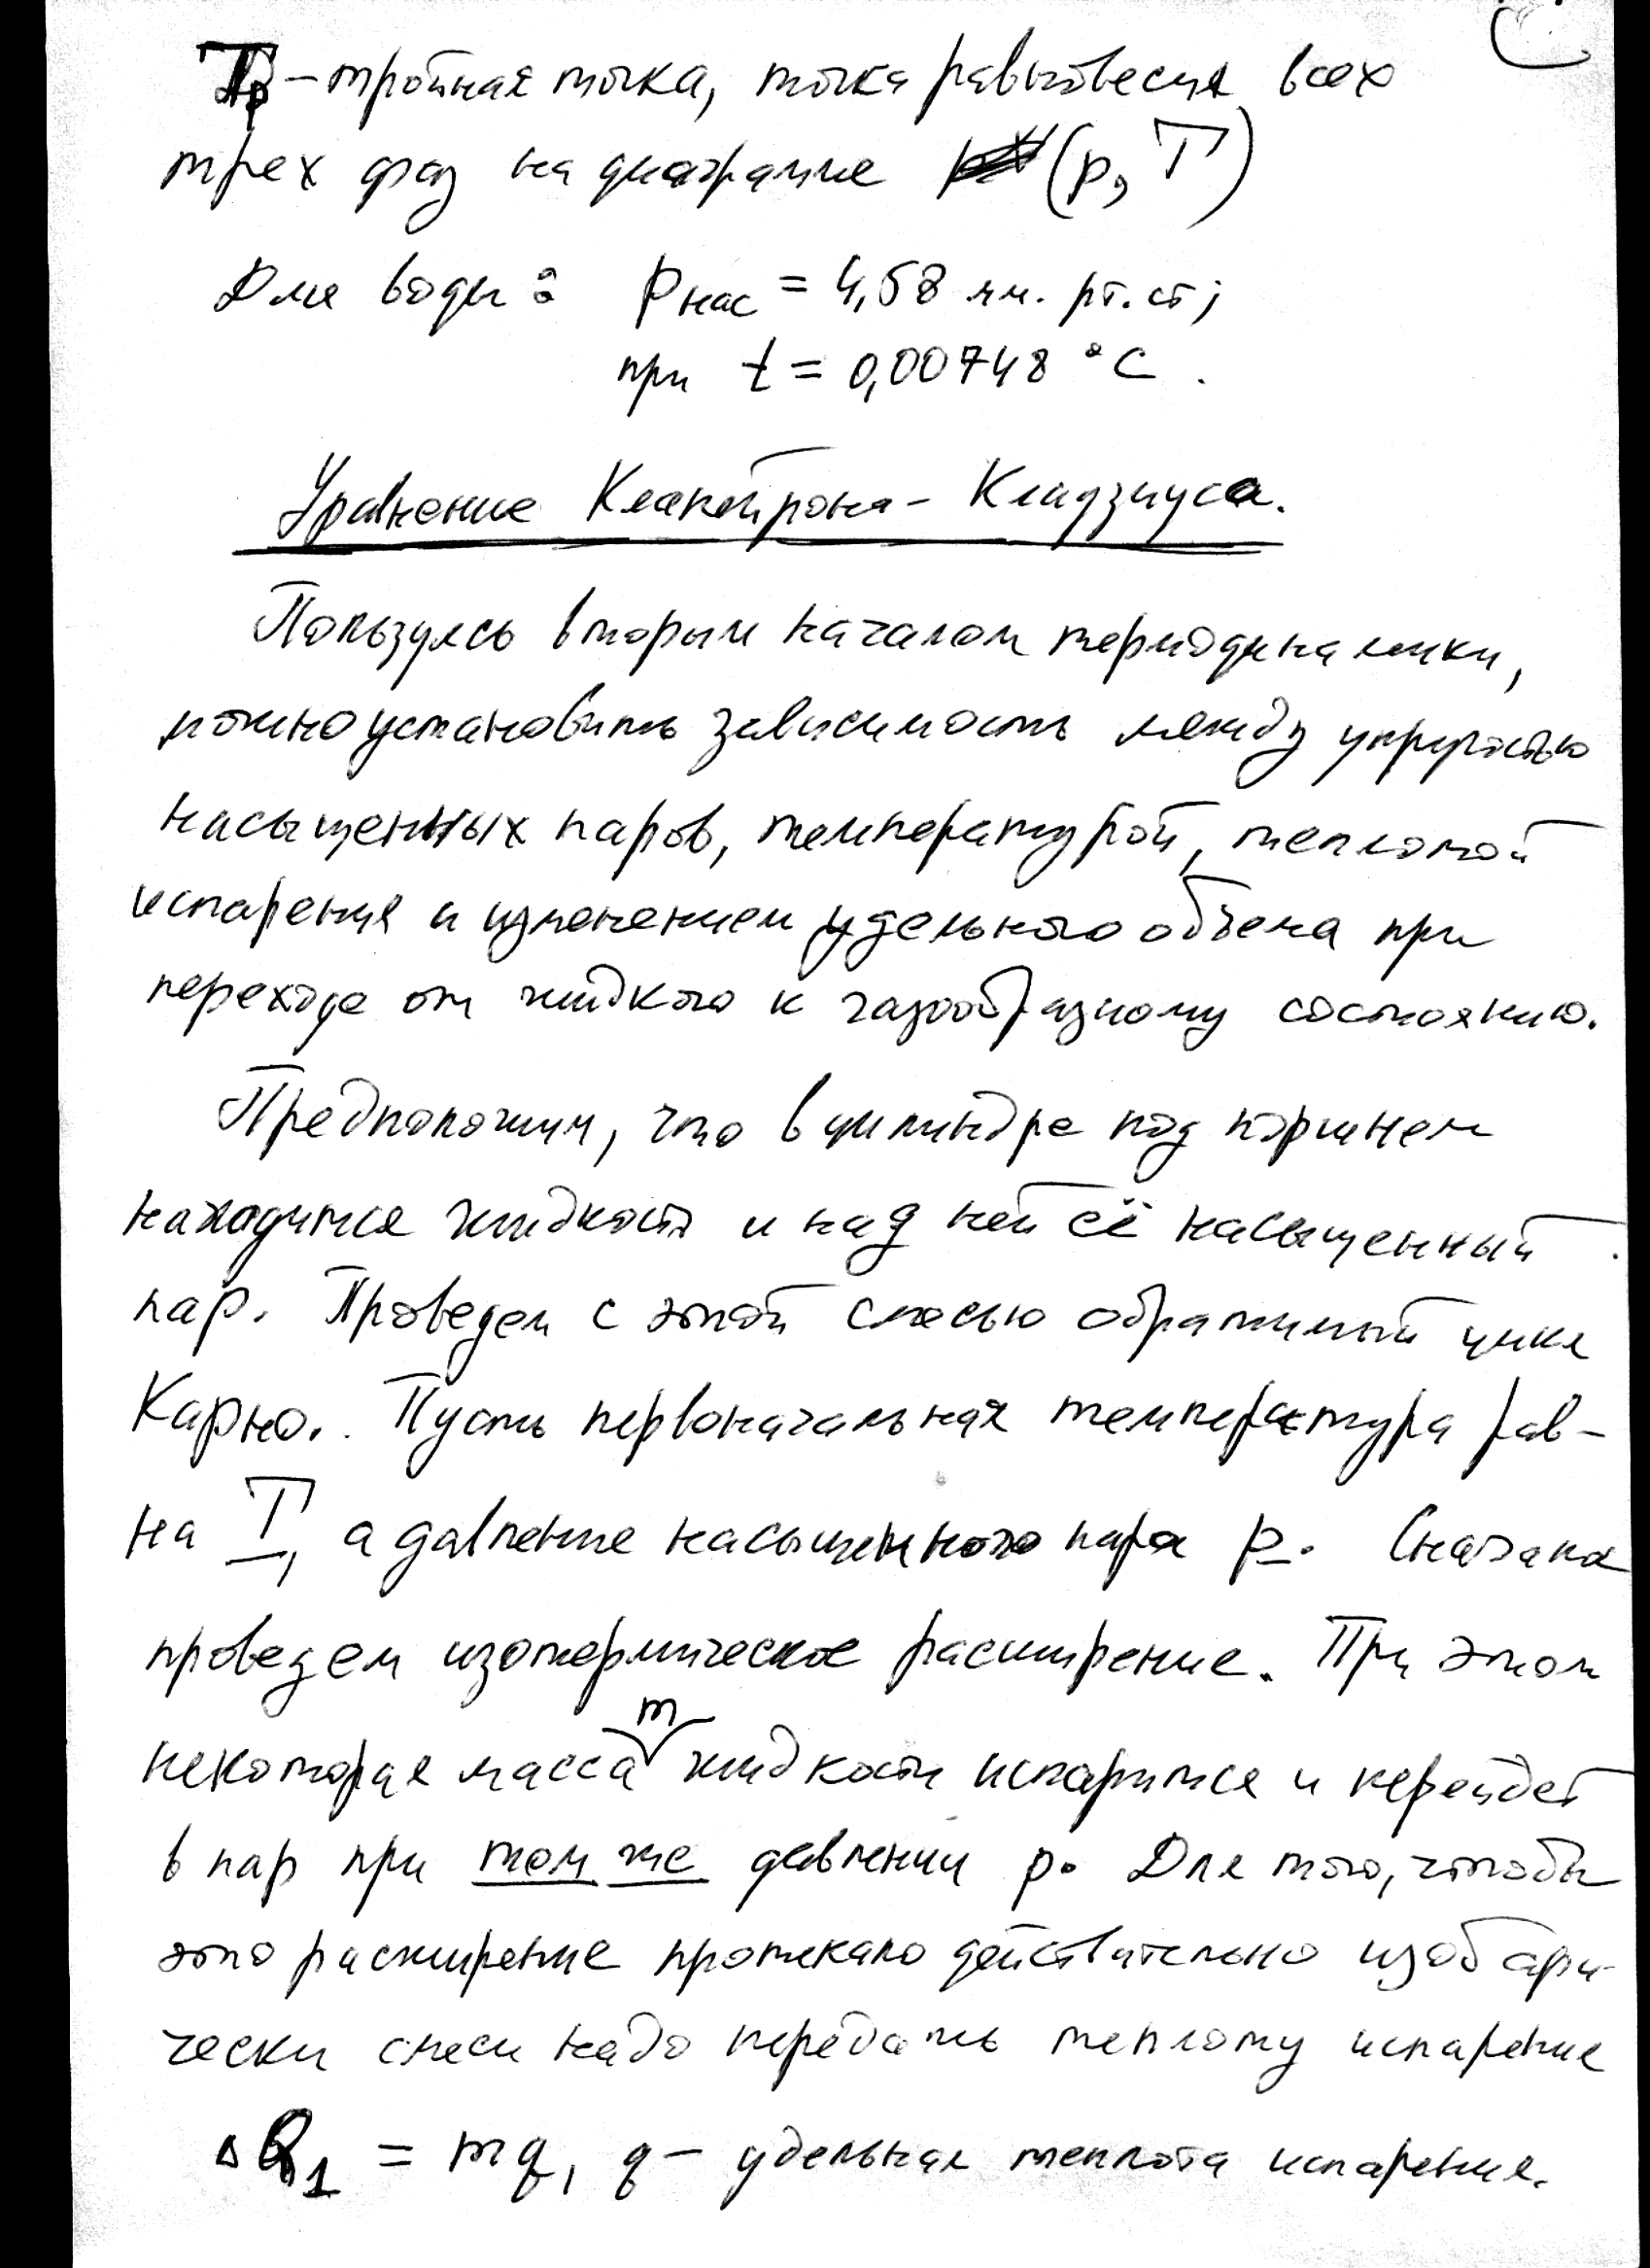 Тр – тройная точка, точка равновесия всех
трех фаз на диаграмме (p, T)
Для воды: pнас = 4,58 мм. рт. ст;
при t = 0,00748 °C.
Уравнение Клапейрона – Клаузиуса.
Пользуясь вторым началом термодинамики,
можно установить зависимость между упругостью
насыщенных паров, температурой, теплотой
испарения и изменением удельного объема при
переходе от жидкого к газообразному состоянию.
Предположим, что в цилиндре под поршнем
находится жидкость и над ней её насыщенный
пар. Проведем с этой смесью обратимый цикл
Карно. Пусть первоначальная температура рав-
на T, а давление насыщенного пара p. Сначала
проведем изотермическое расширение. При этом
некоторая масса m жидкости испарится и перейдет
в пар при том же давлении p. Для того, чтобы
это расширение протекало действительно изобари-
чески смеси надо передать теплоту испарения
ΔQ₁ = mq, q – удельная теплота испарения.